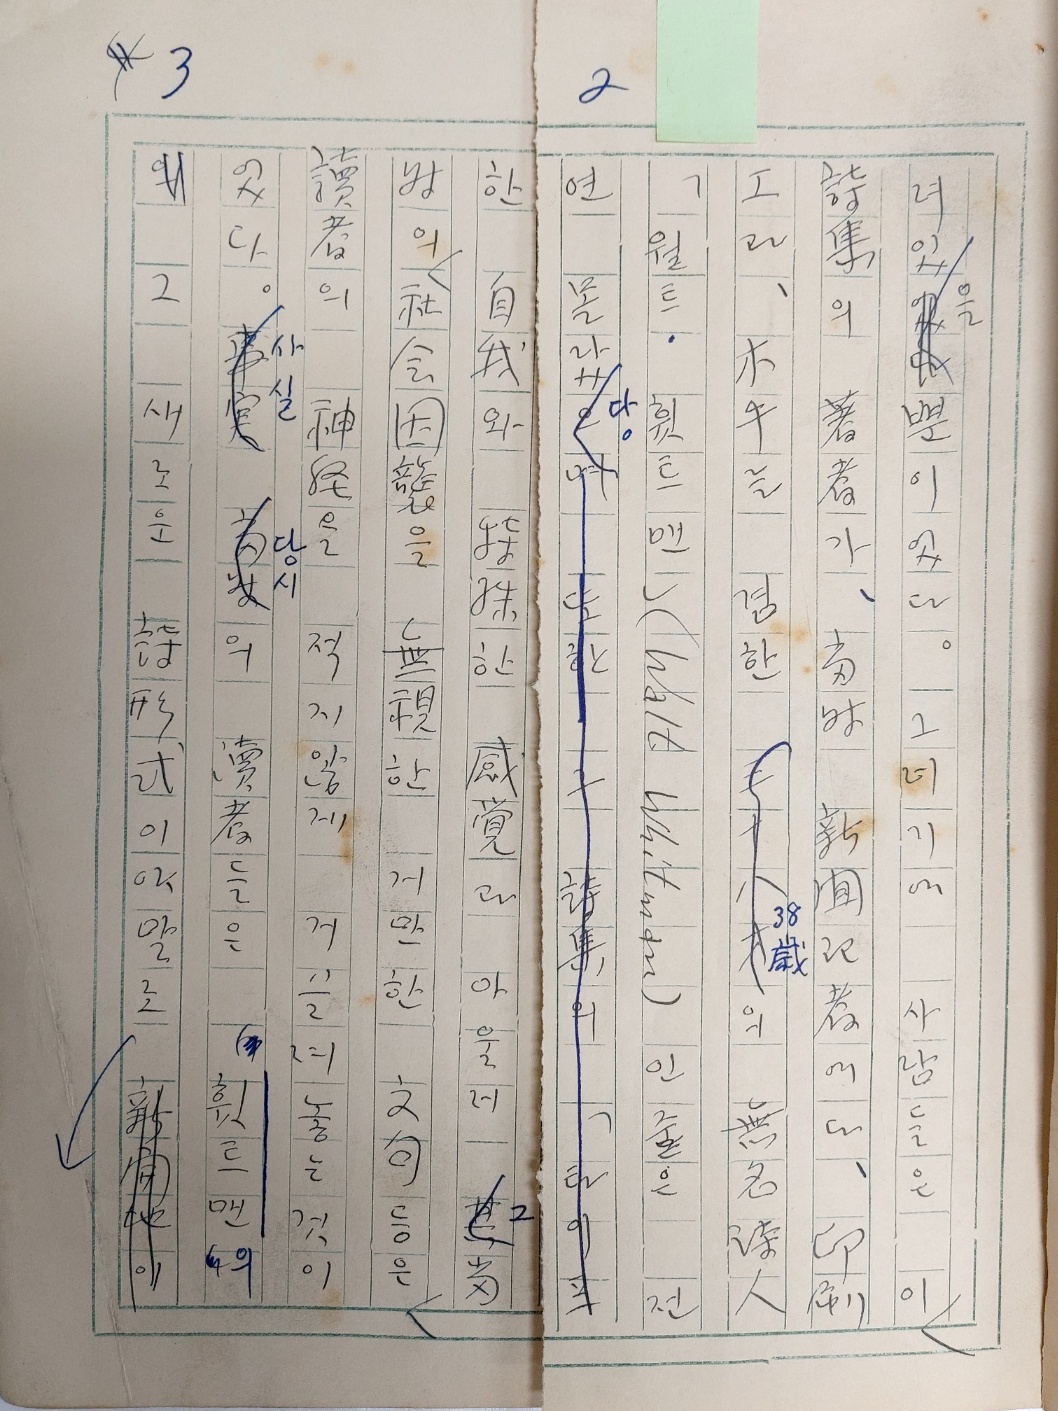 2
려 있을 뿐이였다。 그러기에 사람들은 이
詩集의 著者가、 当時 新聞記者에다、 印刷
工과、 木手를 겸한 38歲의 無名詩人
「월트·휫트맨」(Walt Whitman) 인 줄은 전
연 몰랐당
3
한 自我와 特殊한 感覚과 아울러 그 当
時의 社会因襲을 無視한 거만한 文句등은
讀者의 神経을 적지않게 거슬려 놓는 것이
였다。 사실 당시의 讀者들은 휫트맨의
그 새로운 詩形式이야말로